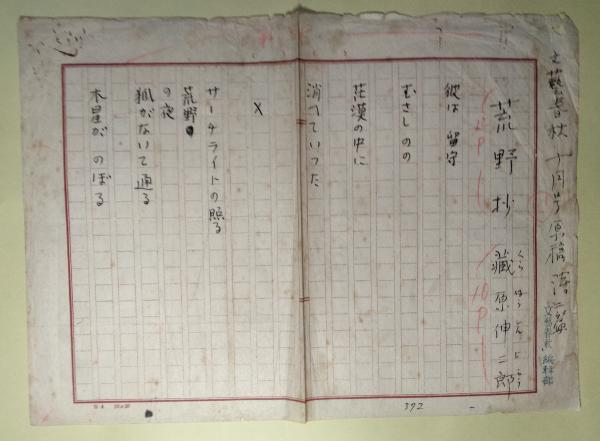 文藝春秋 十月号 原稿
文藝春秋 編輯部
荒野抄 藏原伸二郎
彼は 留守
むさしのの
茫漠の中に
消へていつた
×
サーチライトの照る
荒野
の夜
狐がないて通る
木星が のぼる